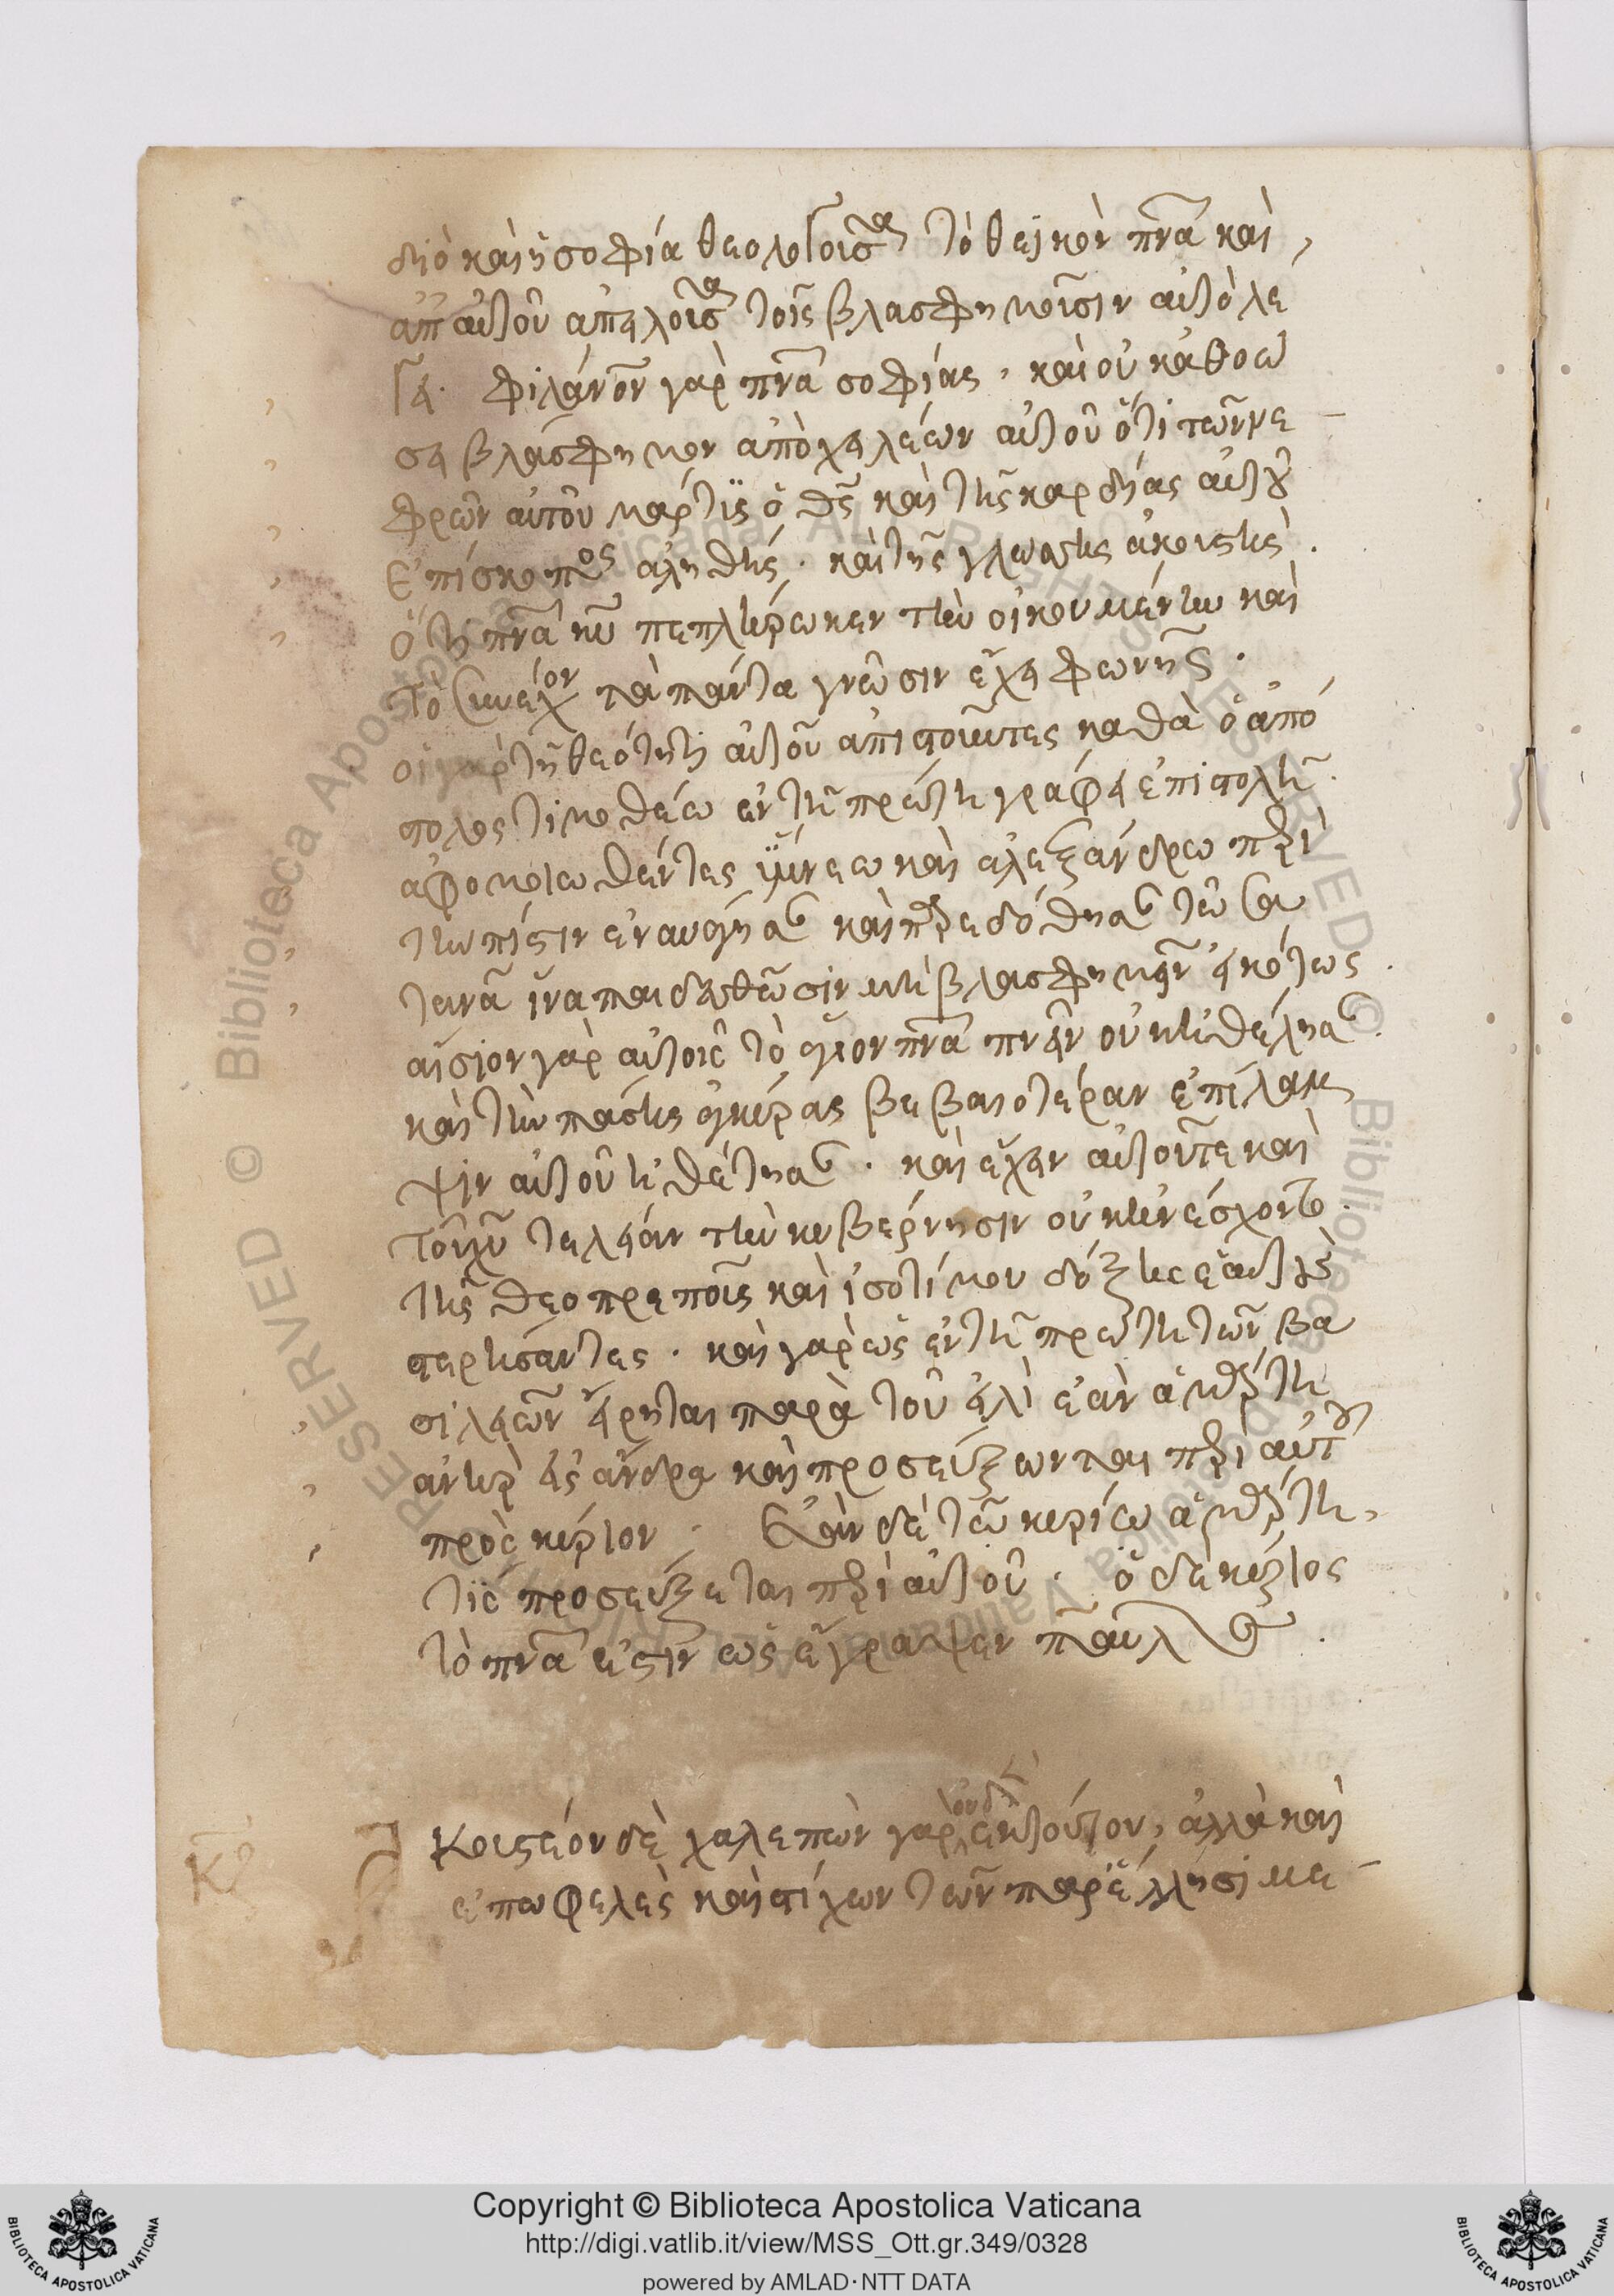 διὸ καὶ ἡ σοφία θεολογοῦσα τὸ θεϊκὸν πνᾶ καὶ,
ἀπ' αὐτοῦ ἀπειλοῦσα τοῖς βλασφημοῦσιν αὐτὸ λέ
γει. φιλάνον γὰρ πνᾶ σοφίας, καὶ οὐκ ἀθοώ
σει βλάσφημον ἀπὸ χειλέων αὐτοῦ ὅτι τῶν νε
φρῶν αὐτοῦ μάρτυς ὁ θς καὶ τῆς καρδίας αὐτοῦ
ἐπίσκοπος ἀληθής. καὶ τῆς γλώσσης ἀκουστής.
ὅτι πνᾶ κυ πεπλήρωκεν τὴν οἰκουμένην καὶ
τὸ συνέχον τὰ πάντα γνῶσιν ἔχει φωνῆς.
οἱ γὰρ τῇ θεότητι αὐτοῦ ἀπιστοῦντες καθὰ ὁ ἀπό
στολος τιμοθέω ἐν τῇ πρώτη γράφει ἐπιστολῇ.
ἀφομοιωθέντες ὑμένεω καὶ ἀλεξάνδρω περὶ
τὴν πίστιν ἐναυάγησαν καὶ παρεδόθησαν τῶ σα
τανᾶ ἵνα παιδευθῶσιν μὴ βλασφημεῖν εἰκότως.
αἴσιον γὰρ αὐτοῖς τὸ ἅγιον πνᾶ πνεῖν οὐκ ἠθέλησαν.
καὶ τὴν πάσης ἡμέρας βεβαιοτέραν ἐπίλαμ
ψιν αὐτοῦ ἠθέτησαν. καὶ ἔχειν αὐτοῦ τε καὶ
τοῦ χυ τελείαν τὴν κυβέρνησιν οὐκ ἠνέσχοντο.
τῆς θεοπρεποῦς καὶ ἰσοτίμου δόξης ἑαυτοὺς
στερήσαντες. καὶ γὰρ ὡς ἐν τῇ πρώτη τῶν βα
σιλειῶν εἴρηται παρὰ τοῦ ἠλὶ ἐὰν ἁμάρτη
ἀνὴρ εἰς ἄνδρα καὶ προσεύξωνται περὶ αὐτοῦ
πρὸς κύριον. ἐὰν δὲ τῶ κυρίω ἁμάρτη,
τίς προσεύξεται περὶ αὐτοῦ. ὁ δὲ κύριος
τὸ πνᾶ ἐστὶν ὡς ἔγραψεν παῦλος.
ἀκουστέον δὲ χαλεπὸν γὰρ οὐδὲν τοῦτον, ἀλλὰ καὶ
ἐπωφελὲς καὶ στίχων τῶν παρ' ἕλλησι με